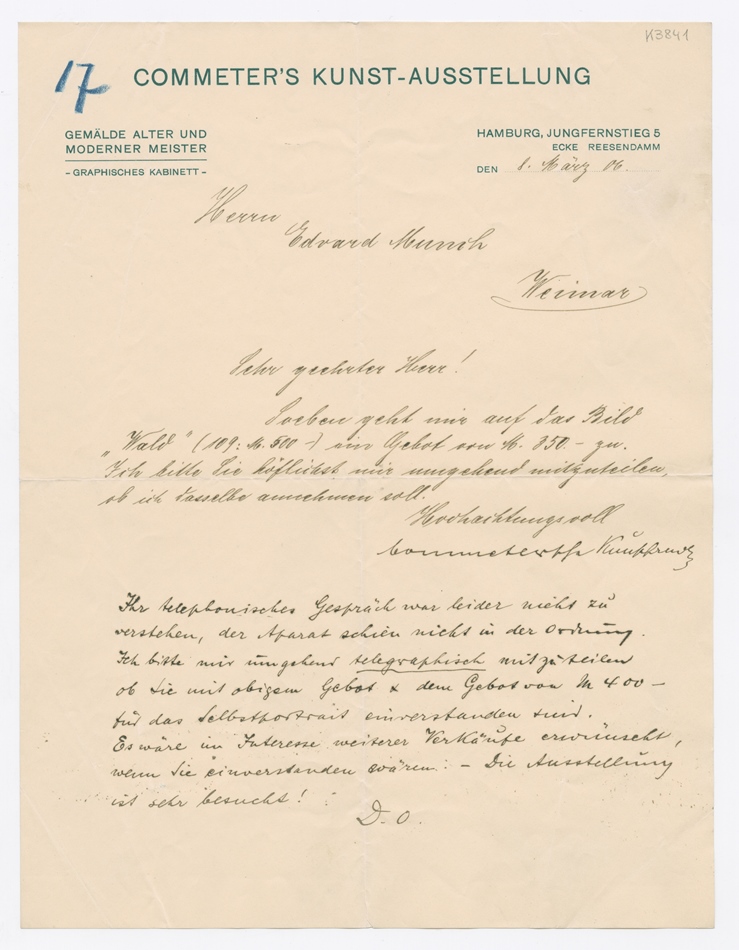 K3841
17
COMMETER'S KUNST-AUSSTELLUNG
GEMÄLDE ALTER UND
MODERNER MEISTER
- GRAPHISCHES KABINETT -
HAMBURG, JUNGFERNSTIEG 5
ECKE REESENDAMM
DEN 8. März 06.
Herrn
Edvard Munch
Weimar
Sehr geehrter Herr!
Soeben geht mir auf das Bild
„Wald" (109: M. 500 -) ein Gebot von M. 350.- zu.
Ich bitte Sie höflichst mir umgehend mitzuteilen,
ob ich dasselbe annehmen soll.
Hochachtungsvoll
Ihr telephonisches Gespräch war leider nicht zu
verstehen, der Aparat schien nicht in der Ordnung.
Ich bitte mir umgehend telegraphisch mitzuteilen
ob Sie mit obigem Gebot & dem Gebot von M 400 -
für das Selbstportrait einverstanden sind.
Es wäre im Interesse weiterer Verkäufe erwünscht,
wenn Sie einverstanden wären. - Die Ausstellung
ist sehr besucht!
D. O.